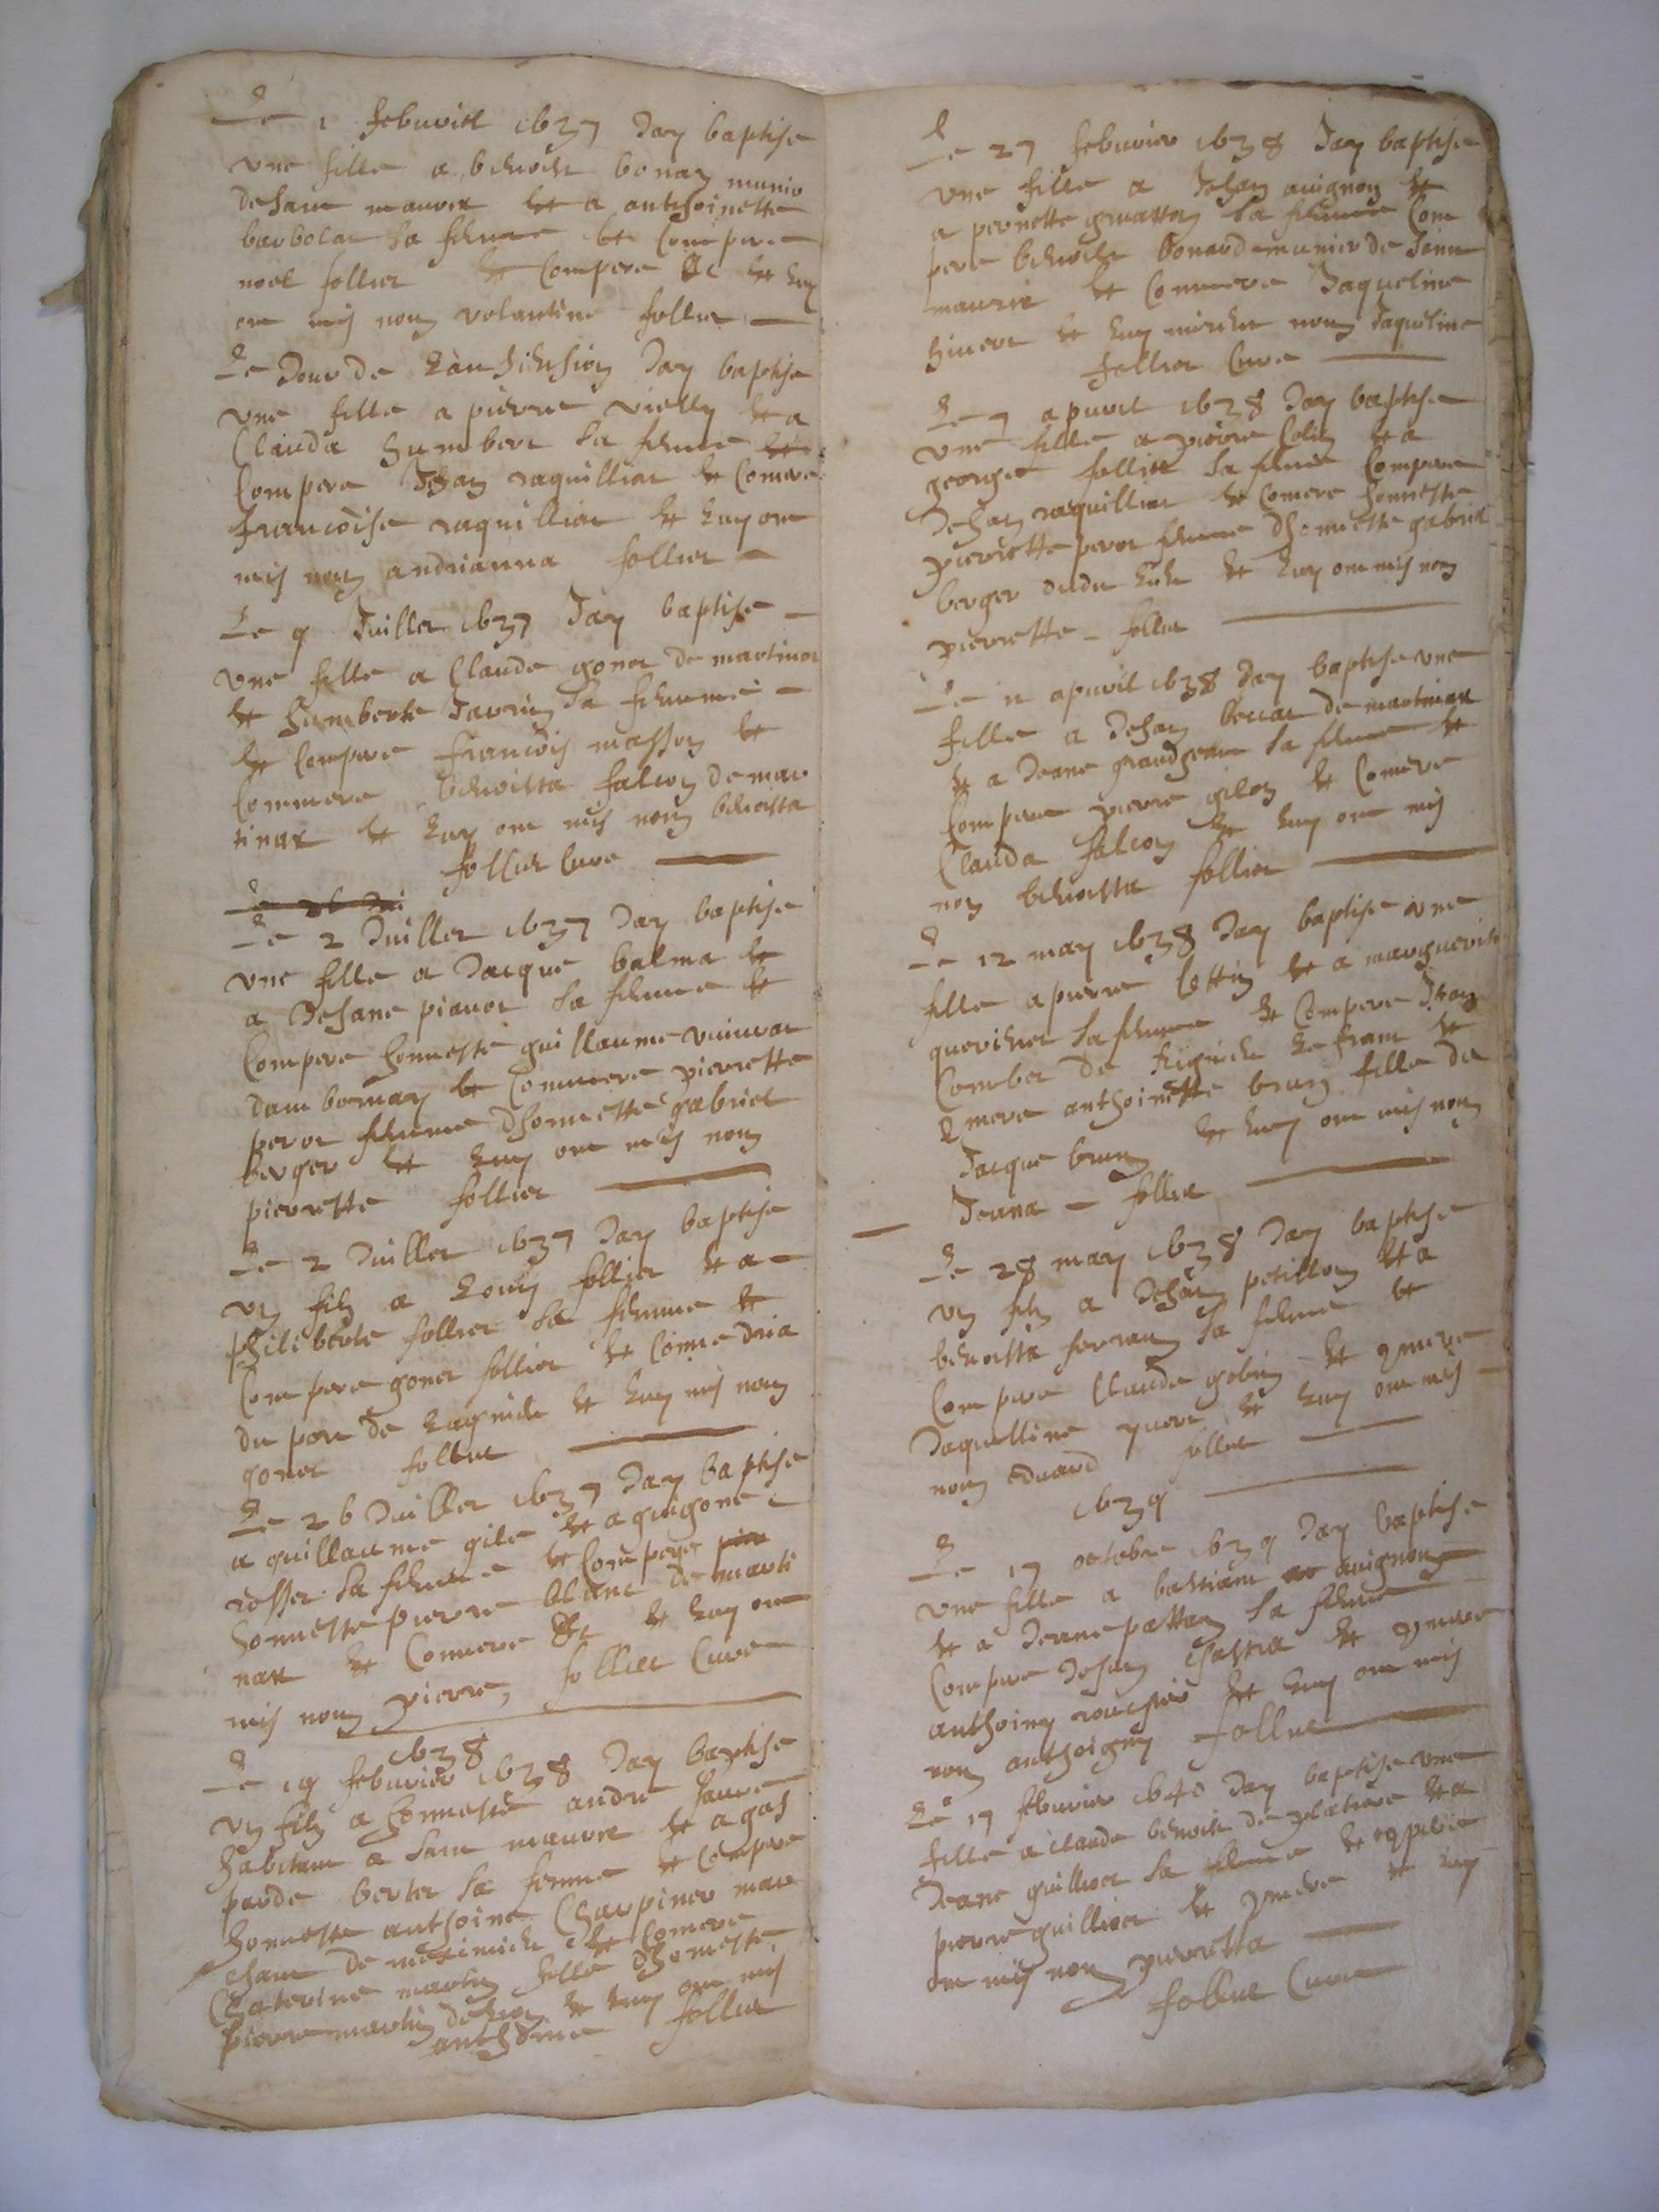 Le 1 febuvier 1637 Jay baptise
une fille a benoist bonaz munier
de saint mauris et a anthoinette
barbolat sa femme et Compere
noel follier et Compere &c et luy
ont mis nom volantine follier
Le Jour de Jay baptise
une fille a pierre vielly et a
Clauda humbert sa femme
Compere Jehan raquilliat et Comere
francoise raquilliat et luy ont
mis nom andrianna follier
Le 9 Juillet 1637 Jay baptise
une fille a Claude gonet de martinat
et humberte Javrin sa femme
et Compere francois masson et
Commere benoista falcon de mar
tinat et luy ont mis nom benoista
follier Cure
Le 2 Juillet 1637 Jay baptise
une fille a Jacque balma et
a Jehane pianot sa femme et
Compere honneste guillaume
dambornay et Commere pierrette
perot femme dhonneste gabriel
berger et luy ont mis nom
pierrette follier
Le 2 Juillet 1637 Jay baptise
un filz a Louis follier et a
philiberte follier sa femme et
Compere gonet follier et
du port de et luy mis nom
gonet follier
Le 26 Juillet 1637 Jay baptise
a guillaume gile et a guigone
rosset sa femme et Compere
honneste pierre blanc de marti
nat et Commere &c et luy ont
mis nom pierre, follier Cure
1638
Le 19 febuvier 1638 Jay baptise
un filz a honneste andre
habitant a saint mauris et a gas
parde bertet sa femme et Compere
honneste anthoine Charpinet mar
chant de et Comere
Chaterine martin fille dhoneste
pierre martin et luy ont mis
anthoine follier
Le 27 febuvier 1638 Jay baptise
une fille a Jehan avignon et
a pernette gruatton sa femme Com
pere benoist bonard munier de saint
mauris et Commere Jaqueline
et luy nom Jaqueline
follier Cure
Le 7 apuril 1638 Jay baptise
une fille a pierre Colin et a
george follier sa femme Compere
Jehan raquilliat et Comere honneste
pierrette perot femme dhonneste gabriel
berger dudit et luy ont mis nom
pierrette follier
Le 11 apuril 1638 Jay baptise une
fille a Jehan de martinat
et a Jeane grandjean sa femme et
Compere pierre gilon et Comere
Clauda falcon et luy ont mis
nom benoista follier
Le 12 may 1638 Jay baptise une
fille a pierre Cottin et a marguerite
sa femme et Compere
de et
Comere anthoinette brun fille de
Jacque brun et luy ont mis nom
Jeana follier
Le 28 may 1638 Jay baptise
un filz a Jehan petillon et a
benoista ferran sa femme et
Compere Claude gobin et Comere
Jaquelline et luy ont mis
nom eduard follier
1639
Le 17 octobre 1639 Jay baptise
une fille a bastiant avignon
et a Jeane pattan sa femme
Compere Jehan et Comere
anthoiny et luy ont mis
nom anthoigny follier
Le 17 febuvier 1640 Jay baptise une
fille a Claude benoist de platiere et a
Jeane guilliot sa femme et Compere
pierre guilliot et Comere et luy
ont mis nom pierretta
follier Cure